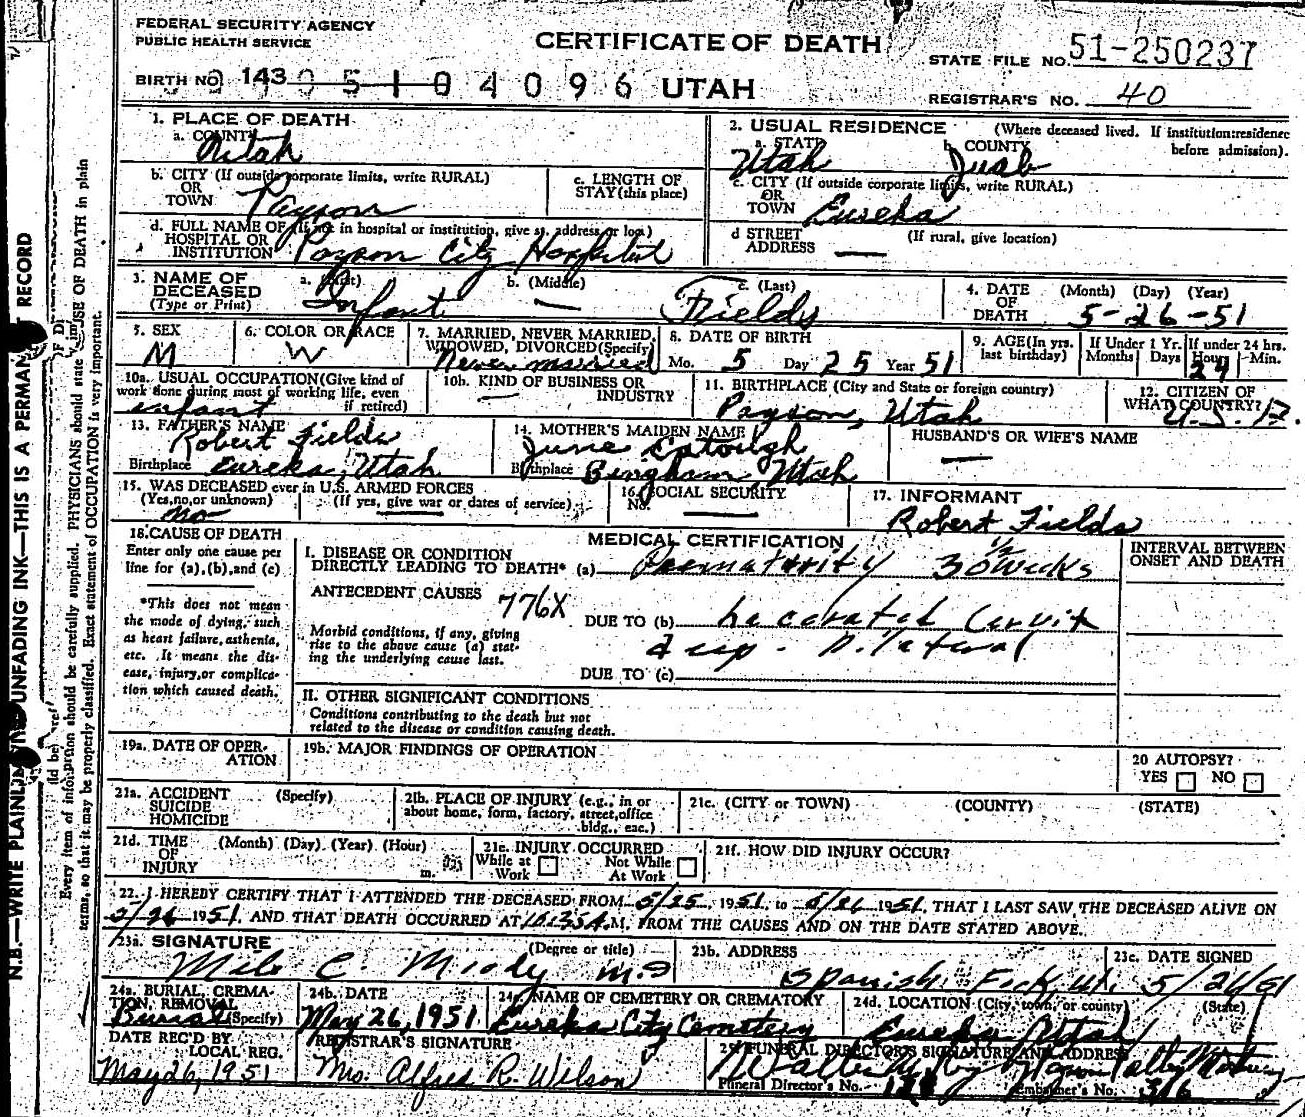 FEDERAL SECURITY AGENCY
PUBLIC HEALTH SERVICE
CERTIFICATE OF DEATH
STATE FILE NO. 51-250237
BIRTH NO. 143 UTAH
REGISTRAR'S NO. 40
1. PLACE OF DEATH
a. COUNTY Utah
2. USUAL RESIDENCE (Where deceased lived. If institution:residence before admission).
a. STATE Utah b. COUNTY Juab
b. CITY (If outside corporate limits, write RURAL)
OR
TOWN Payson
c. LENGTH OF
STAY (this place)
c. CITY (If outside corporate limits, write RURAL)
OR
TOWN Eureka
d. FULL NAME OF (If not in hospital or institution, give st. address or loc.)
HOSPITAL OR
INSTITUTION Payson City Hospital
d STREET (If rural, give location)
ADDRESS —
3. NAME OF
DECEASED
(Type or Print)
a. (First) b. (Middle) c. (Last)
Infant — Fields
4. DATE (Month) (Day) (Year)
OF
DEATH 5-26-51
5. SEX
M
6. COLOR OR RACE
W
7. MARRIED, NEVER MARRIED,
WIDOWED, DIVORCED(Specify)
Never married
8. DATE OF BIRTH
Mo. 5 Day 25 Year 51
9. AGE(In yrs. last birthday)
If Under 1 Yr.
Months Days
If under 24 hrs.
Hours Min.
24
10a. USUAL OCCUPATION(Give kind of
work done during most of working life, even
if retired)
infant
10b. KIND OF BUSINESS OR
INDUSTRY
—
11. BIRTHPLACE (City and State or foreign country)
Payson, Utah
12. CITIZEN OF
WHAT COUNTRY?
13. FATHER'S NAME
Robert Fields
Birthplace Eureka, Utah
14. MOTHER'S MAIDEN NAME
June
Birthplace Bingham Utah
HUSBAND'S OR WIFE'S NAME
—
15. WAS DECEASED ever in U.S. ARMED FORCES
(Yes,no,or unknown) (If yes, give war or dates of service)
no
16. SOCIAL SECURITY
No.
17. INFORMANT
Robert Fields
18. CAUSE OF DEATH
Enter only one cause per
line for (a),(b),and (c)
*This does not mean
the mode of dying, such
as heart failure, asthenia,
etc. It means the dis-
ease, injury,or complica-
tion which caused death.
MEDICAL CERTIFICATION
I. DISEASE OR CONDITION
DIRECTLY LEADING TO DEATH* (a) Prematurity 30 1/2 weeks
ANTECEDENT CAUSES 776X
DUE TO (b) Lacerated Cervix
Morbid conditions, if any, giving
rise to the above cause (a) stat-
ing the underlying cause last.
deep
DUE TO (c)
II. OTHER SIGNIFICANT CONDITIONS
Conditions contributing to the death but not
related to the disease or condition causing death.
INTERVAL BETWEEN
ONSET AND DEATH
19a. DATE OF OPER-
ATION
19b. MAJOR FINDINGS OF OPERATION
20 AUTOPSY?
YES NO
21a. ACCIDENT (Specify)
SUICIDE
HOMICIDE
21b. PLACE OF INJURY (e.g., in or
about home, form, factory, street,office
bldg., eac.)
21c. (CITY or TOWN) (COUNTY) (STATE)
21d. TIME (Month) (Day) (Year) (Hour)
OF
INJURY m.
21e. INJURY OCCURRED
While at
Work
Not While
At Work
21f. HOW DID INJURY OCCUR?
22. I HEREBY CERTIFY THAT I ATTENDED THE DECEASED FROM 5/25, 1951, to 5/26 1951, THAT I LAST SAW THE DECEASED ALIVE ON
5/26 1951, AND THAT DEATH OCCURRED AT 10:35A.M. FROM THE CAUSES AND ON THE DATE STATED ABOVE.
23a. SIGNATURE (Degree or title)
C. Moody M.D
23b. ADDRESS
Spanish Fork, Ut.
23c. DATE SIGNED
5/26/51
24a. BURIAL, CREMA-
TION, REMOVAL
(Specify)
Burial
24b. DATE
May 26, 1951
24c. NAME OF CEMETERY OR CREMATORY
Eureka City Cemetery
24d. LOCATION (City, town, or county) (State)
Eureka Utah
DATE REC'D BY
LOCAL REG.
May 26, 1951
REGISTRAR'S SIGNATURE
Mrs. Alfred R. Wilson
25. FUNERAL DIRECTOR'S SIGNATURE AND ADDRESS
Funeral Director's No. Embalmer's No. 316
N.B.—WRITE PLAINLY UNFADING INK—THIS IS A PERMANENT RECORD
Every item of information should be carefully supplied. PHYSICIANS should state CAUSE OF DEATH in plain
terms, so that it may be properly classified. Exact statement of OCCUPATION is very important.